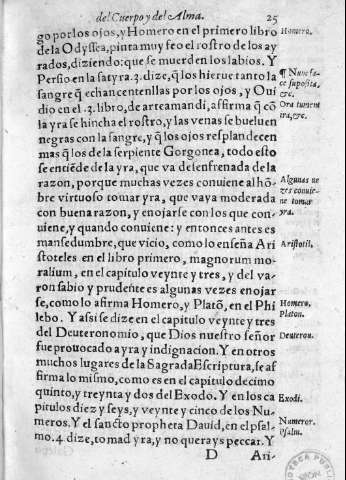 del Cuerpo y del Alma. 25
go por los ojos, y Homero en el primero libro
de la Odyssea, pinta muy feo el rostro de los ay
rados, diziendo: que se muerden los labios. Y
Persio en la satyra. 3. dize, q̃ los hierue tanto la
sangre q̃ echan centenllas por los ojos, y Oui
dio en el .3. libro, de arte amandi, affirma q̃ cõ
la yra se hincha el rostro, y las venas se bueluen
negras con la sangre, y q̃ los ojos resplandecen
mas q̃ los de la serpiente Gorgonea, todo esto
se entiẽde de la yra, que va desenfrenada de la
razon, porque muchas vezes conuiene al hõ-
bre virtuoso tomar yra, que vaya moderada
con buena razon, y enojarse con los que con-
uiene, y quando conuiene: y entonces antes es
mansedumbre, que vicio, como lo enseña Ari
stoteles en el libro primero, magnorum mo-
ralium, en el capitulo veynte y tres, y del va-
ron sabio y prudente es algunas vezes enojar
se, como lo afirma Homero, y Platõ, en el Phi
lebo. Y assi se dize en el capitulo veynte y tres
del Deuteronomio, que Dios nuestro señor
fue prouocado a yra y indignacion. Y en otros
muchos lugares de la Sagrada Escriptura, se af
firma lo mismo, como es en el capitulo decimo
quinto, y treynta y dos del Exodo. Y en los ca
pitulos diez y seys, y veynte y cinco de los Nu-
meros. Y el sancto propheta Dauid, en el psal-
mo. 4 dize, tomad yra, y no querays peccar. Y
D Ari-
Homero.
¶ Nunc fa-
ce supposita,
&c.
Ora tument
ira, &c.
Algunas ve
zes conuie-
ne tomar
yra.
Aristotil,
Homero.
Platon.
Deuteron.
Exodi.
Numeror.
Psalm.